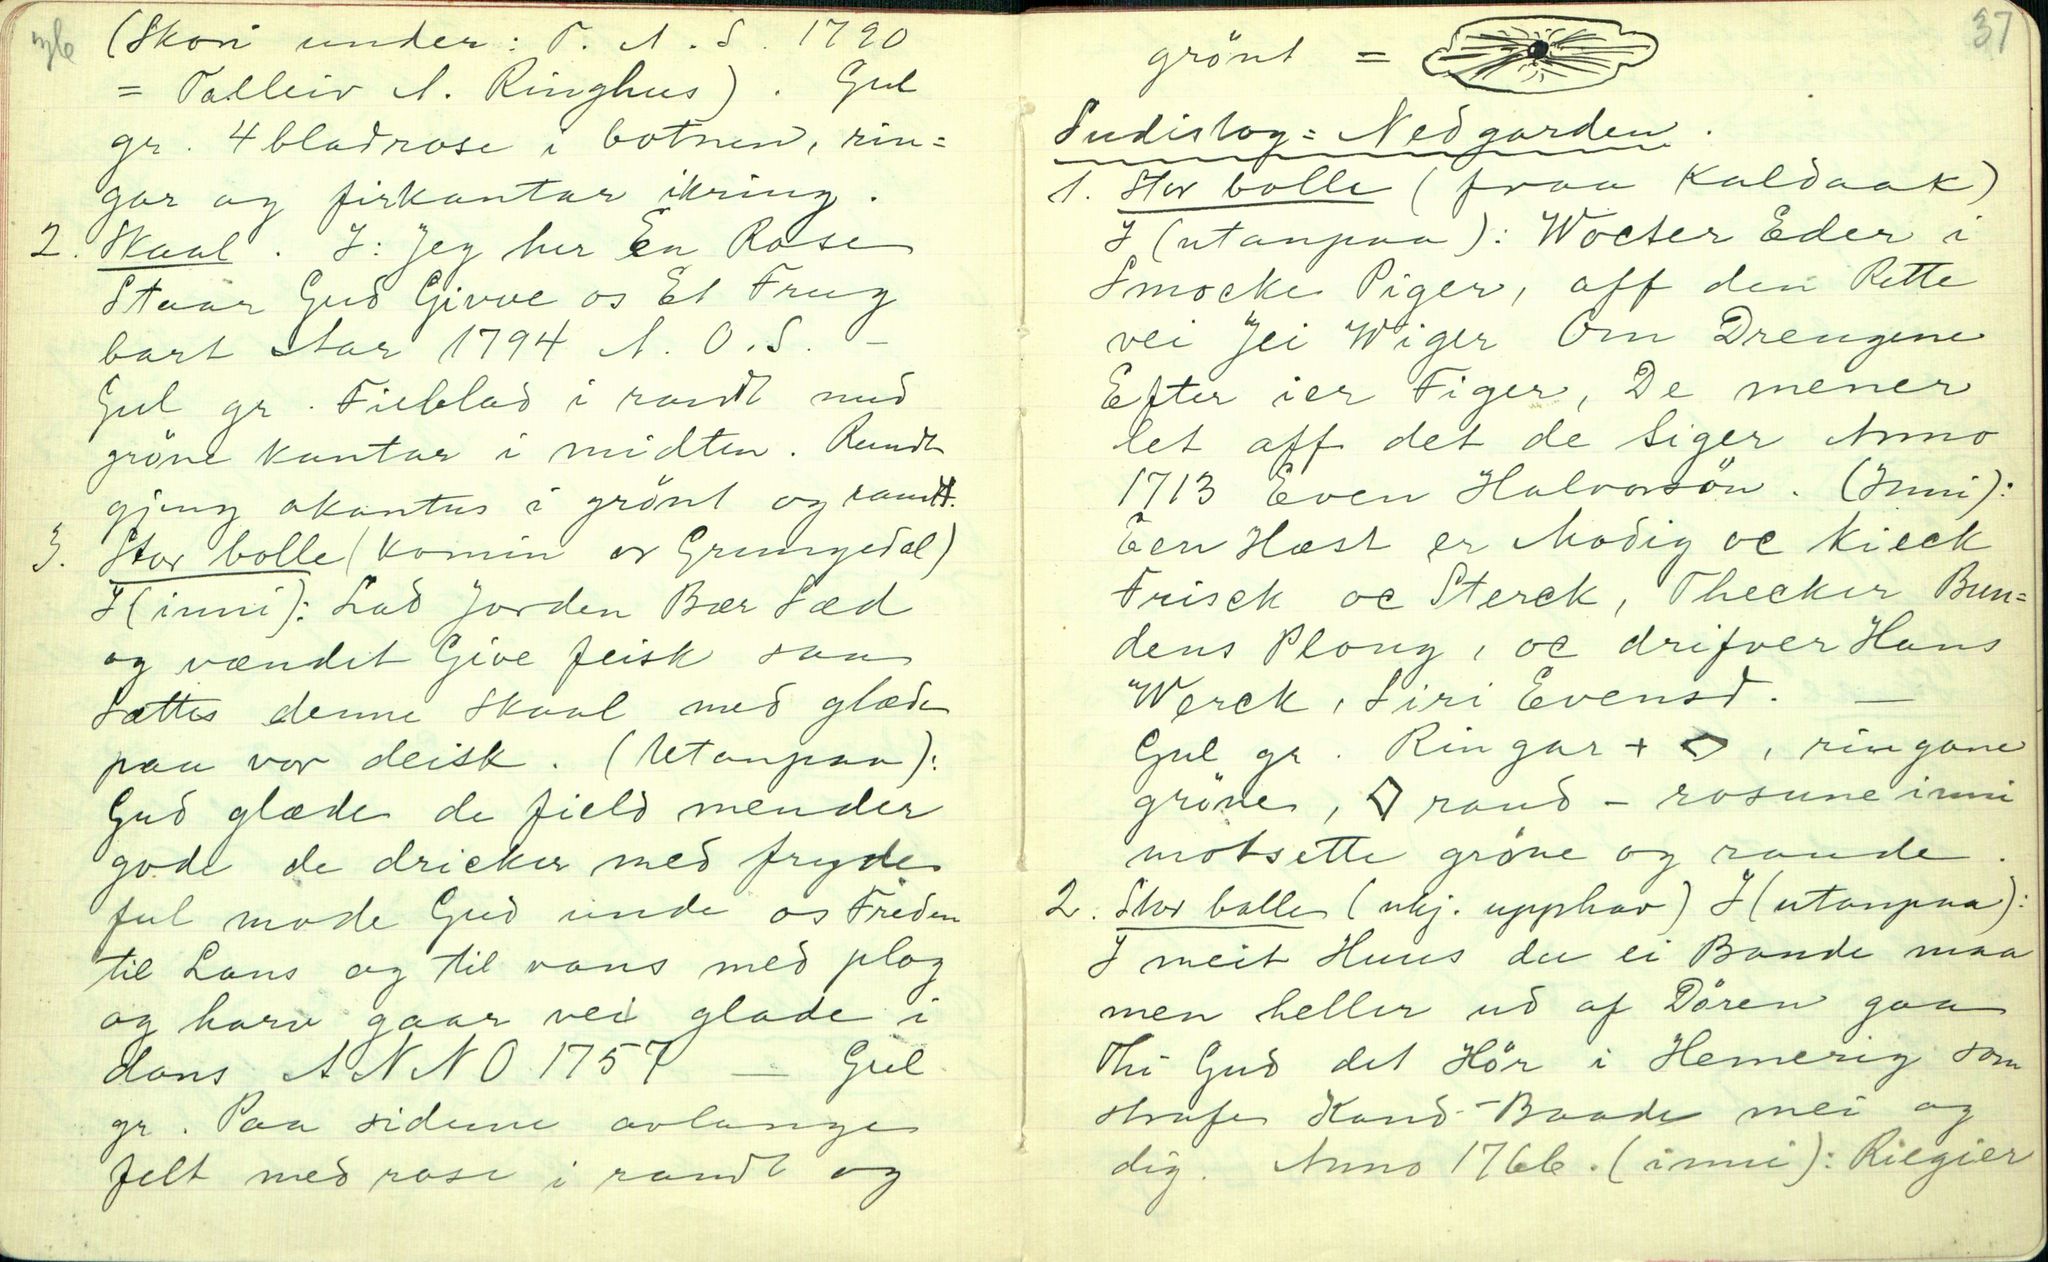 36
(Skori under: T. A. S. 1790
= Talleiv A. Ringhus). Gul
gr. 4 bladrose i botnen, rin=
gar og firkantar ikring.
2. Skaal. I: Jeg her En Rose
Staar Gud Givve os Et Frug
bart Aar 1794 A. O. S. –
Gul gr. Fieblad i raudt med
gröne kantar i midten. Rundt
gjeng akantus i grönt og raudt.
3. Stor bolle (komin or Grungedal)
I (inni): Lad Jorden Bær Sæd
og vændet Give feisk saa
Sættes denne skaal med glæde
paa vor deisk. (Utanpaa):
Gud glæde de field mender
gode de dricker med fryde
ful mode Gud unde os Freden
til Lans og til vans med plog
og harv gaar vei glade i
dans ANNO 1757 — Gul
gr. Paa sidune avlange
felt med rose i raudt og
37
grönt =
Sudistog = Nedgarden.
1. Stor bolle (fraa Kaldaak)
I (utanpaa): Wocter Eder i
Smocke Piger, aff den Rette
vei Jei Wiger Om Drengene
Efter ier Figer, De mener
let aff det de siger Anno
1713 Even Halvorsön. (Inni):
Een Hæst er Modig oc kieck
Frisck oc Sterck, Thecker Bun=
dens Plong, oc drifver Hans
Werck, Siri Evensd. —
Gul gr. Ringar + ◇, ringane
gröne, ◇ raud – rosune inni
motsette gröne og raude.
2. Stor bolle (ukj. upphav) I (utanpaa):
I meit Huus du ei Bande maa
men heller ud af Dören gaa
Thi Gud det Hör i Hemerig som
strafe Kand – Baade mei og
dig. Anno 1766. (inni): Riegier